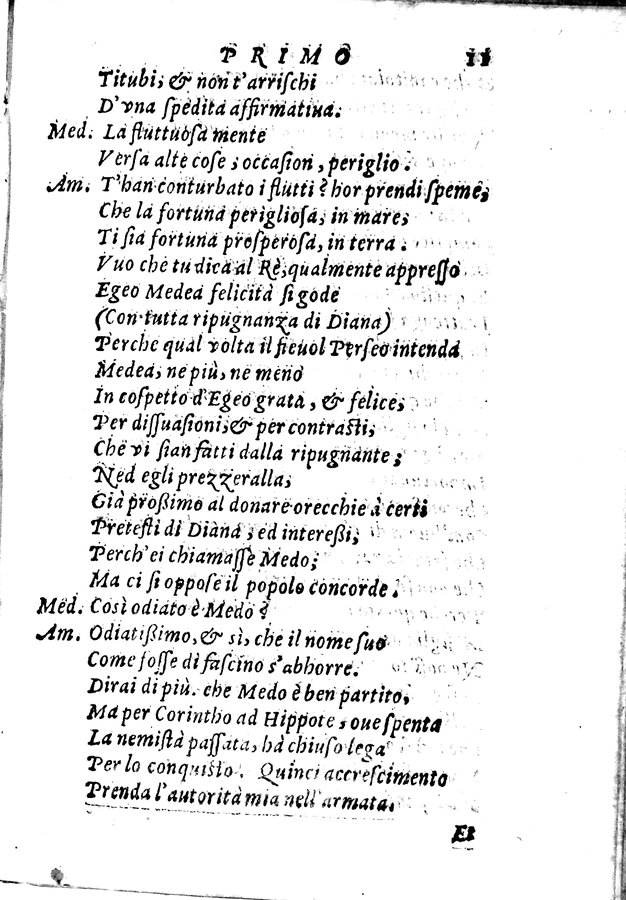 PRIMO 11
Titubi, & non t'arriſchi
D'vna ſpedita affirmatiua.
Med. La fluttuoſa mente
Verſa alte coſe, occaſion, periglio.
Am. T'han conturbato i flutti? hor prendi ſpeme,
Che la fortuna perigliosa, in mare,
Ti ſia fortuna proſperoſa, in terra.
Vuo che tu dica al Rè, qualmente appreſſo
Egeo Medea felicità ſi gode
(Con tutta ripugnanza di Diana)
Perche qual volta il fieuol Perſeo intenda
Medea, ne più, ne meno
In coſpetto d'Egeo grata, & felice,
Per diſſuaſioni, & per contraſti,
Che vi ſian fatti dalla ripugnante;
Ned egli prezzeralla,
Già proßimo al donare orecchie à certi
Preteſti di Diana, ed intereßi,
Perch'ei chiamaſſe Medo;
Ma ci ſi oppoſe il popolo concorde.
Med. Così odiato è Medo?
Am. Odiatißimo, & sì, che il nome ſuo
Come foſſe di faſcino s'abhorre.
Dirai di più. che Medo è ben partito,
Ma per Corintho ad Hippote, oue ſpenta
La nemiſtà paſſata, hà chiuſo lega
Per lo conquiſto. Quinci accreſcimento
Prenda l'autorità mia nell'armata.
Et